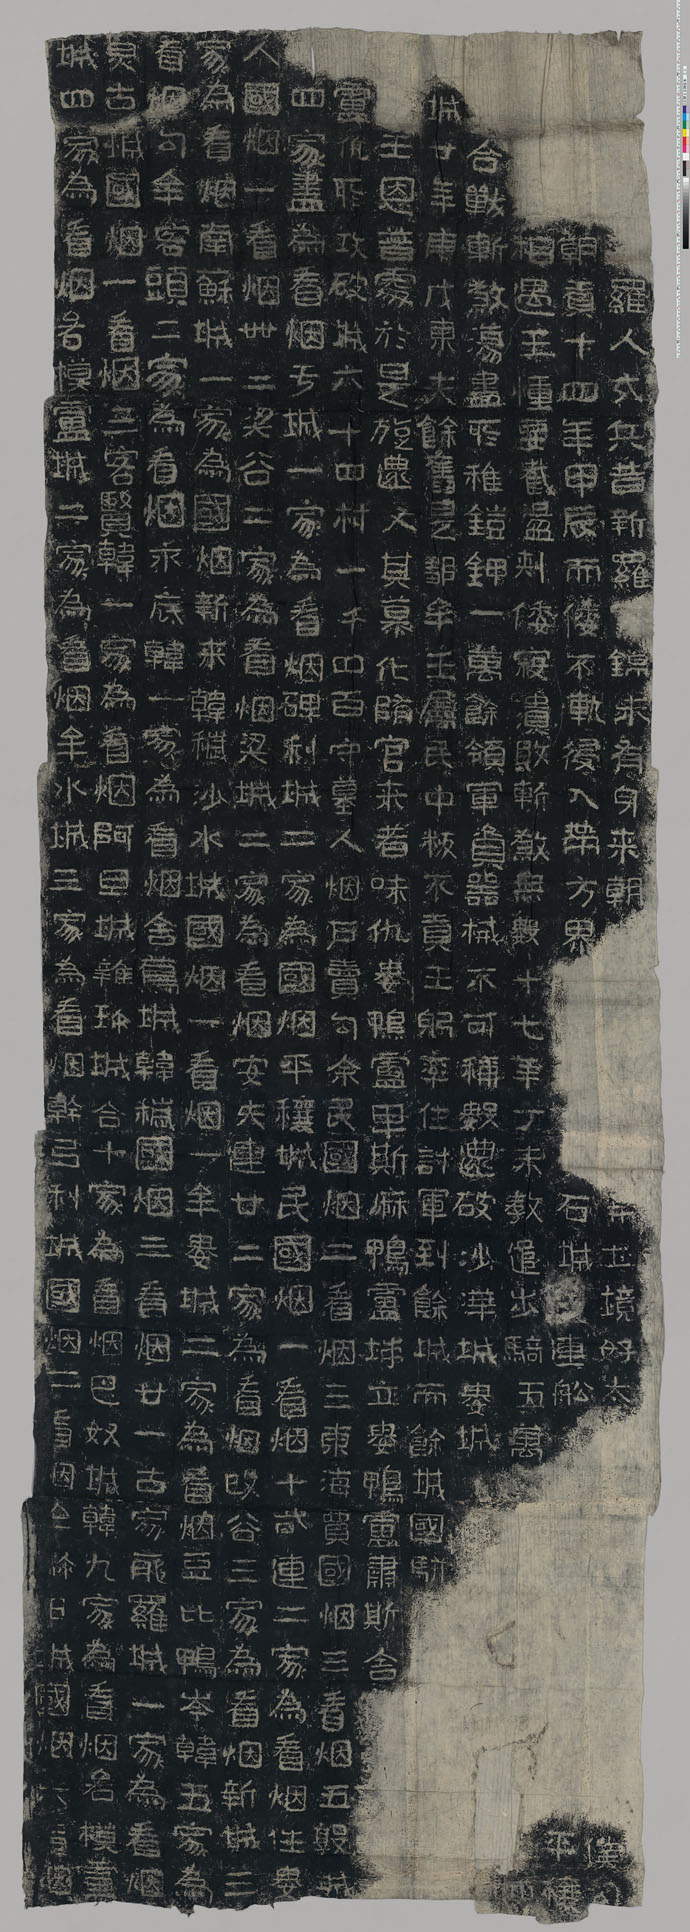 羅人戍兵昔新羅錦未有身来朝土境好太僕
朝貢十四年甲辰而倭不軌侵入帶方界石城連船平穰
相遇王幢要截盪刺倭寇潰敗斬煞無數十七年丁未教遣步騎五萬
合戰斬煞蕩盡所稚鎧鉀一萬餘領軍資器械不可稱數還破沙溝城婁城
城廿年庚戌東夫餘舊是鄒牟王屬民中叛不貢王躬率往討軍到餘城而餘城國駢
王恩普霑於是旋還又其慕化隨官来者味仇婁鴨盧卑斯麻鴨盧立婁鴨盧肅斯舍
盧凡所攻破城六十四村一千四百守墓人烟戶賣勾余民國烟二看烟三東海賈國烟三看烟五敦城
四家盡為看烟于城一家為看烟碑利城二家為國烟平穰城民國烟一看烟十訾連二家為看烟住婁
人國烟一看烟卌二梁谷二家為看烟梁城二家為看烟安夫連廿二家為看烟改谷三家為看烟新城三
家為看烟南蘇城一家為國烟新来韓穢沙水城國烟一看烟一牟婁城二家為看烟豆比鴨岑韓五家為
看烟勾牟客頭二家為看烟永底韓一家為看烟舍蔦城韓穢國烟三看烟廿一古家耶羅城一家為看烟
炅古城國烟一看烟三客賢韓一家為看烟阿旦城雜珍城合十家為看烟巴奴城韓九家為看烟各模盧
城四家為看烟各模盧城二家為看烟牟水城三家為看烟幹弖利城國烟二看烟城國烟六看烟